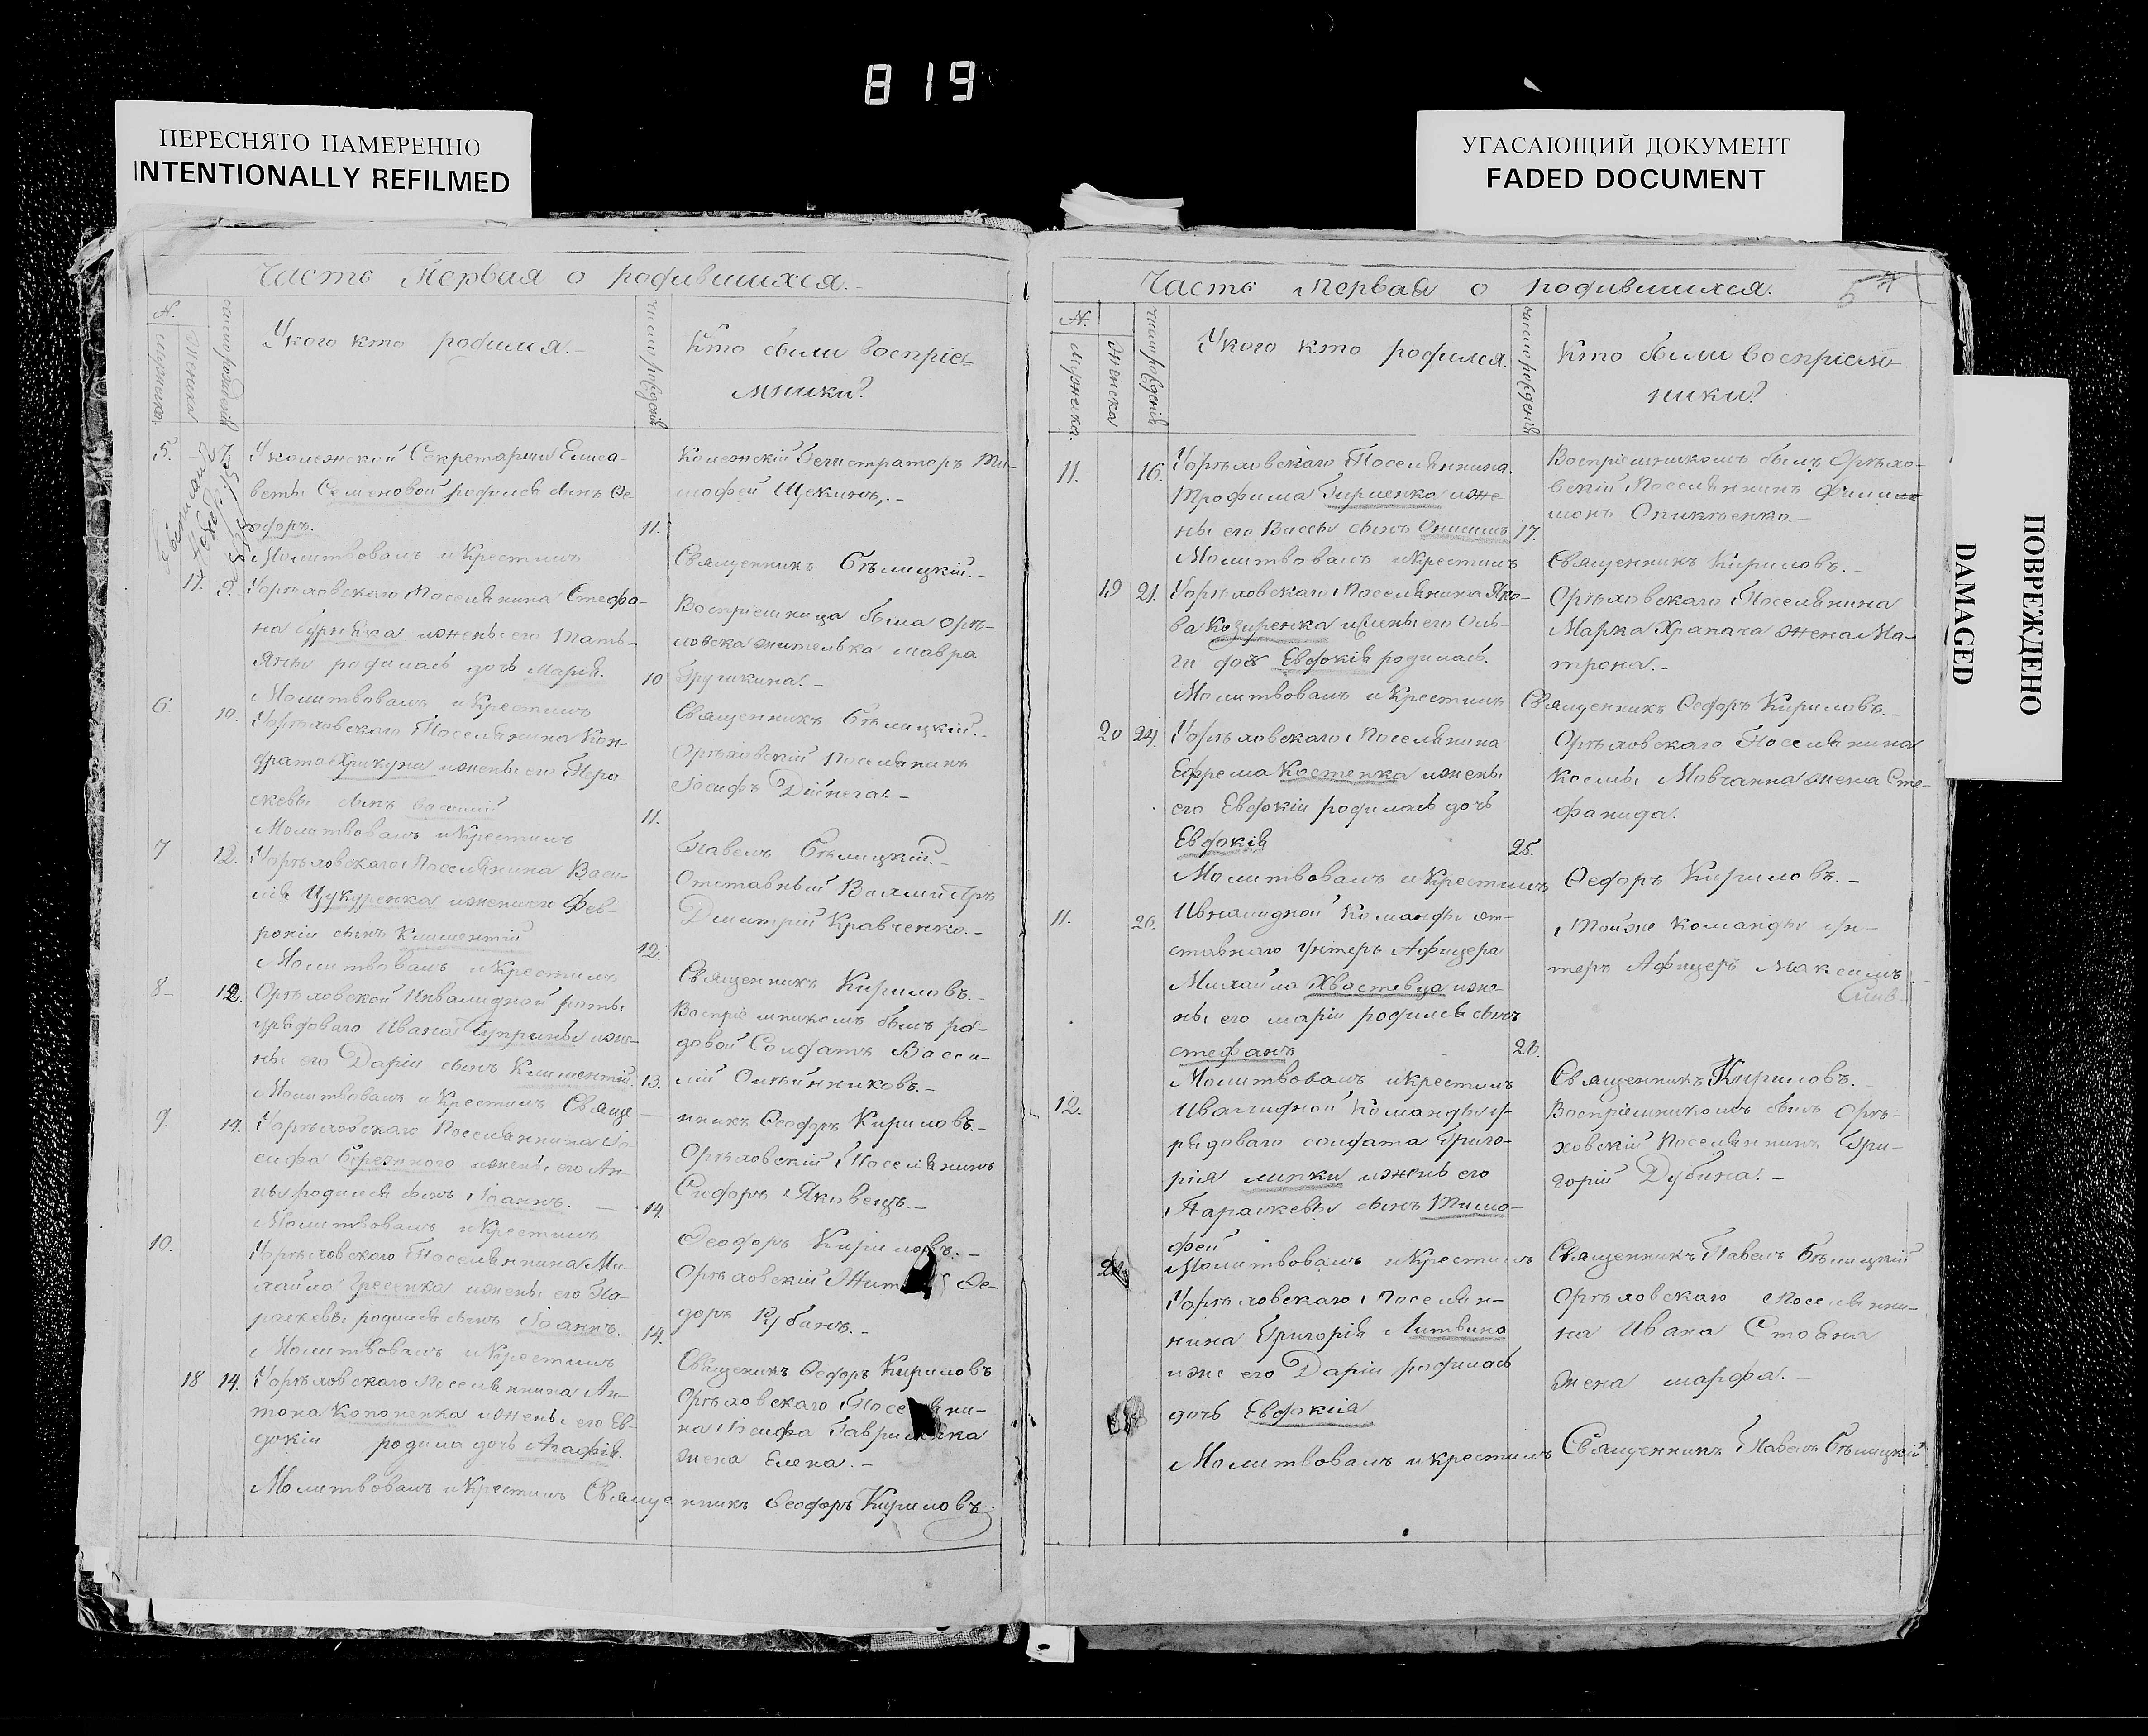 819
ПЕРЕСНЯТО НАМЕРЕННО
INTENTIONALLY REFILMED
УГАСАЮЩИЙ ДОКУМЕНТ
FADED DOCUMENT
ПОВРЕЖДЕНО
DAMAGED
Часть Первая о родившихся.
N.
Мужеска
Женска
число рожденія
У кого кто родился.
число рожденія
Кто были воспріе=
мники?
5.
7.
У Колежской Секретарши Елиса-
веты Семеновой родился сынъ Ѳе
одоръ.
11.
Колежскій Регистраторъ Ти-
мофей Щекинъ.
Молитвовалъ и Крестилъ
Священникъ Бѣлицкій.
17.
9.
У орѣховскаго Поселянина Стефа-
на жены его Тать-
яны родилась дочь Марія.
10
Воспріемница была Орѣ-
ховска жителька Мавра
Молитвовалъ и Крестилъ
Священникъ Бѣлицкій.
6.
10.
У орѣховскаго Поселянина Кон-
драта жены его Пара
скевы сынъ Василій
11.
Орѣховскій Поселянинъ
Іосифъ Дійнега.
Молитвовалъ и Крестилъ
Павелъ Бѣлицкій.
7
12.
У орѣховскаго Поселянина Васи-
лія Цукуренка жены его Фев-
роніи сынъ Климентій
12.
Отставный
Дмитрій Кравченко.
Молитвовалъ и Крестилъ
Священникъ Кириловъ.
8
12.
Орѣховской Инвалидной роты
урядоваго Ивана Чуприны жен-
ны его Даріи сынъ Климентій.
13.
Воспріемникомъ былъ ря-
довой Солдатъ Васи-
лій Олѣйниковъ.
Молитвовалъ и Крестилъ Свяще
нникъ Ѳеодоръ Кириловъ.
9.
14.
У орѣховскаго Поселянина Іо-
сифа Бережного жены его Ан-
ны родился сынъ Іоаннъ.
14.
Орѣховскій Поселянинъ
Сидоръ Яковецъ.
Молитвовалъ и Крестилъ
Ѳеодоръ Кириловъ.
10.
У орѣховскаго Поселянина Ми-
хайла жены его Па-
раскевы родился сынъ Іоаннъ.
14.
Орѣховскій Ѳе-
доръ Кубанъ.
Молитвовалъ и Крестилъ
Священикъ Ѳедоръ Кириловъ
18
14.
У орѣховскаго Поселянина Ан-
тона Кононенка жены его Ев-
докіи родила дочь Агафія.
Орѣховскаго Поселяни-
на Іосифа
жена Елена.
Молитвовалъ и Крестилъ Свяще
нникъ Ѳеодоръ Кириловъ.
Часть Первая о родившихся.
5
N.
Мужеска.
Женска
число рожденія
У кого кто родился.
число рожденія
Кто были воспріем
ники?
11.
16.
У орѣховскаго Поселянина.
Трофима Гирменка и же
ны его Вассы сынъ Онисимъ
17.
Воспріемникомъ былъ Орѣхо-
вскій Поселянинъ Фили
монъ Оникіенко.
Молитвовалъ и Крестилъ
Священникъ Кириловъ.
19
21.
У орѣховскаго Поселянина Яко-
ва Козиренка и жены его Оль-
ги дочь Евдокія родилась.
Орѣховскаго Поселянина
Марка Храпача жена Ма-
трона.
Молитвовалъ и Крестилъ
Священникъ Ѳедоръ Кириловъ.
20
24.
У орѣховскаго Поселянина
Ефрема Костенка и жены
его Евдокіи родилась дочь
Евдокія
25.
Орѣховскаго Поселянина
Космы Мовчана жена Сте-
фанида.
Молитвовалъ и Крестилъ
Ѳедоръ Кириловъ.
11.
26.
Ивналидной Команды от-
ставнаго Унтеръ Афицера
Михайла Хвастевца и же-
ны его маріи родился сынъ
стефанъ
26.
Тойже Команды Ун-
теръ Афицеръ Максимъ
Молитвовалъ и крестилъ
Священникъ Кириловъ.
12.
Ивалидной Команды у-
рядоваго солдата Григо-
рія липки и жены его
Параскевы сынъ Тимо-
фей
Воспріемникомъ былъ Орѣ-
ховскій Поселянинъ Гри-
горій Дубина.
Молитвовалъ и Крестилъ
Священникъ Павелъ Бѣлицкій
У орѣховскаго Поселян-
нина Григорія Литвина
и же его Даріи родилась
дочь Евдокіія
Орѣховскаго Поселянни-
на Ивана Стояна
жена марфа.
Молитвовалъ и крестилъ
Священникъ Павелъ Бѣлицкій